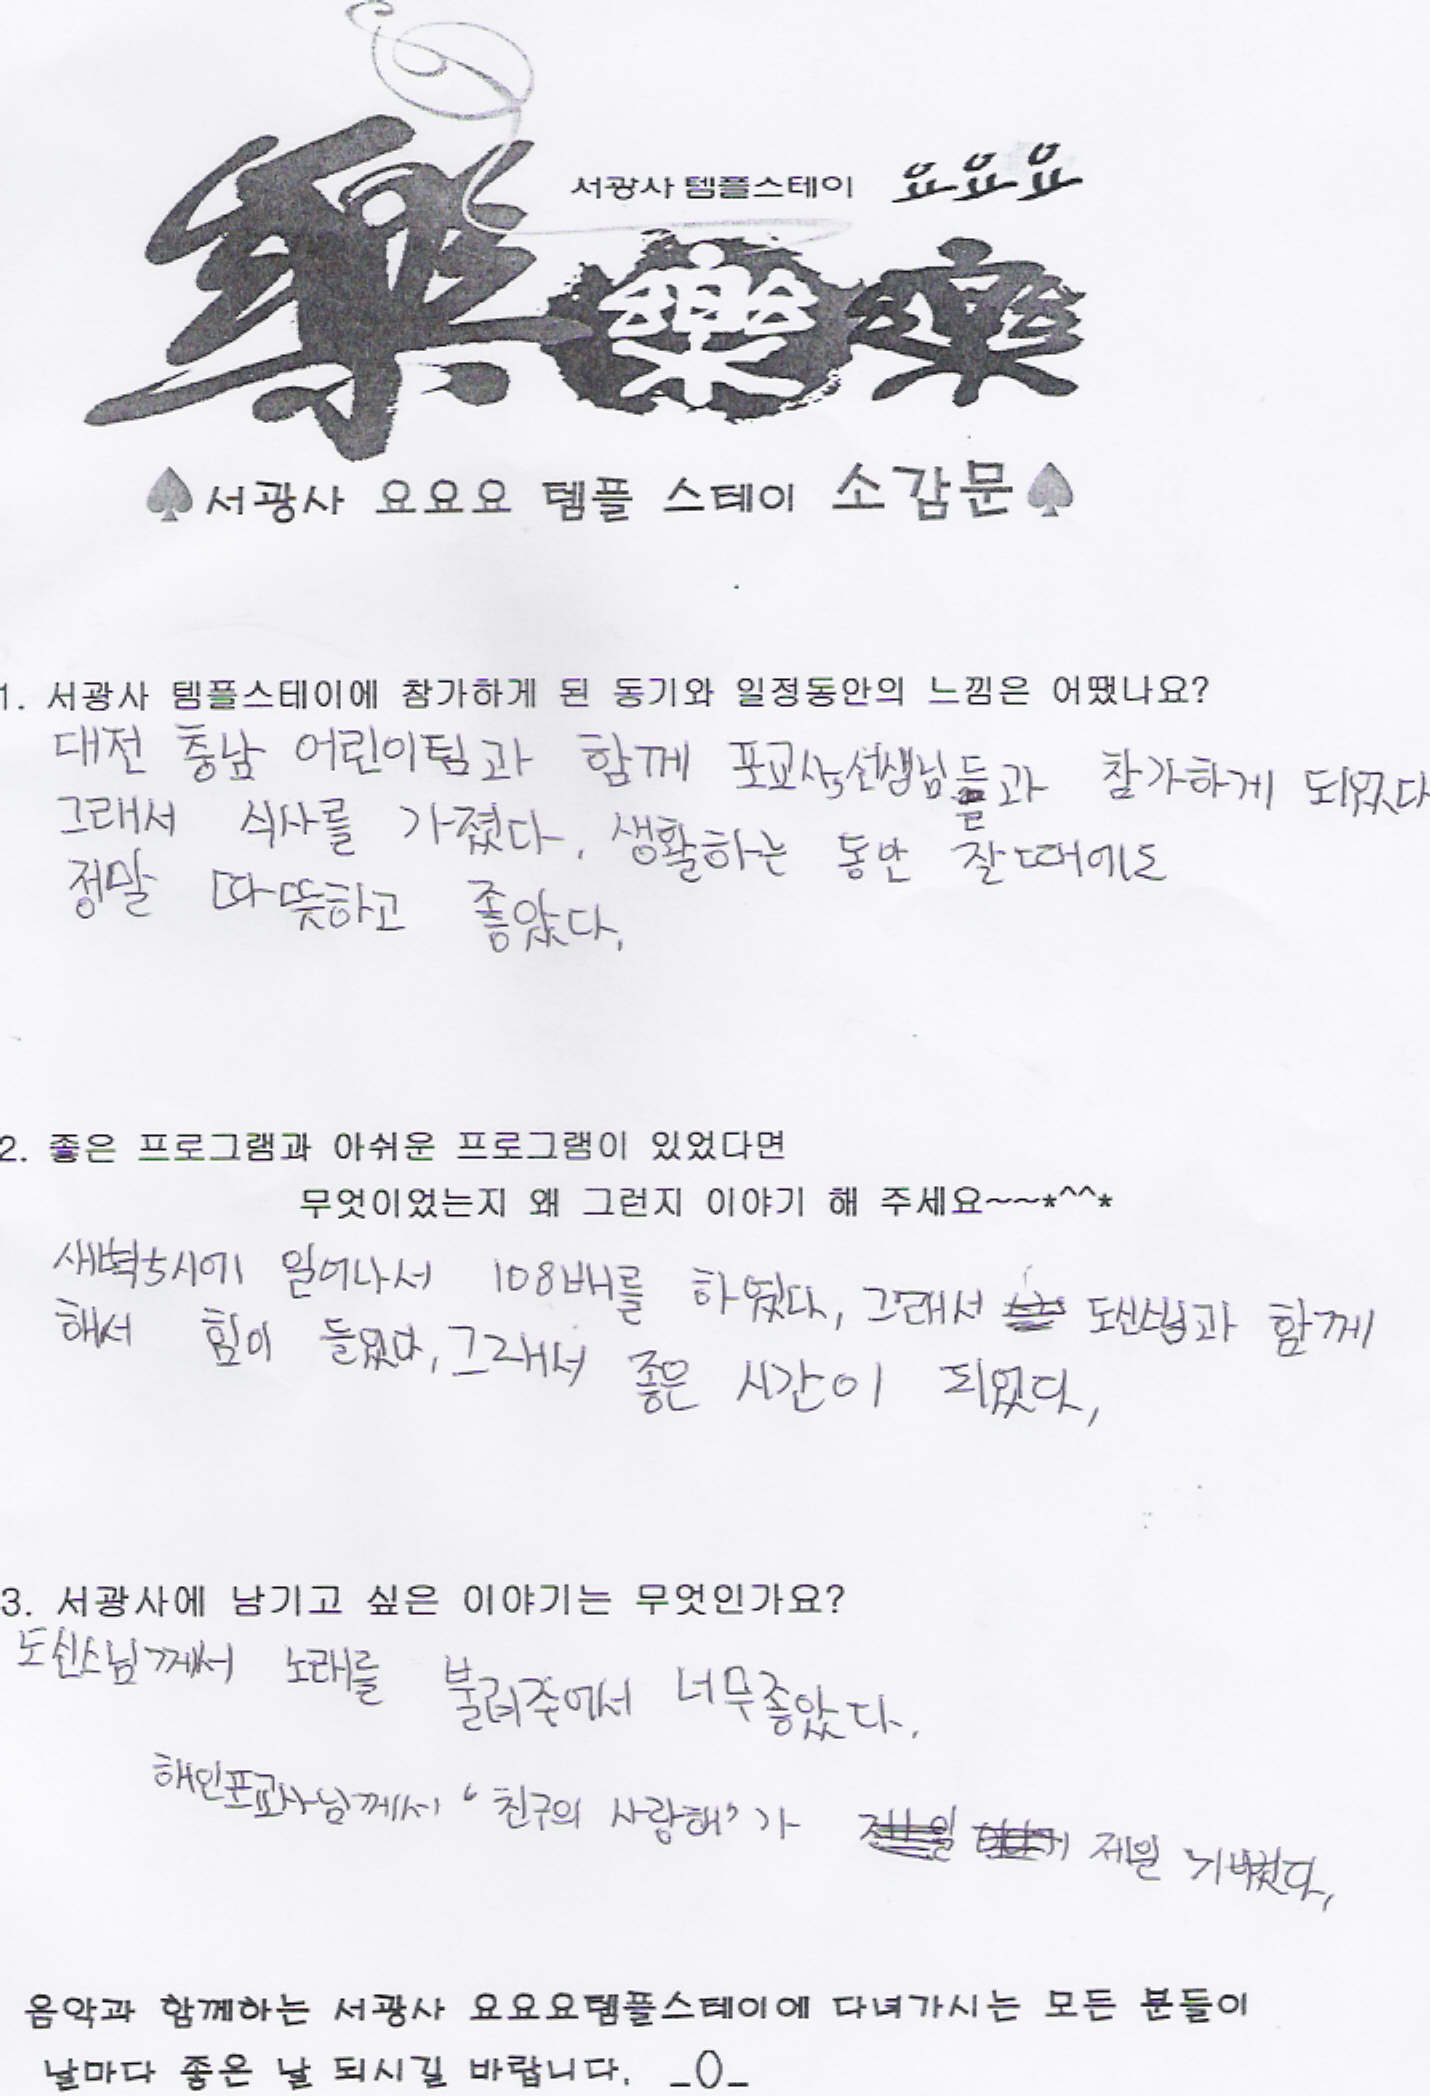 서광사 템플스테이 요요요
樂樂樂
서광사 요요요 템플 스테이 소감문
1. 서광사 템플스테이에 참가하게 된 동기와 일정동안의 느낌은 어땠나요?
대전 충남 어린이팀과 함께 포교사선생님들과 참가하게 되었다
그래서 식사를 가졌다. 생활하는 동안 잘때에도
정말 따뜻하고 좋았다.
2. 좋은 프로그램과 아쉬운 프로그램이 있었다면
무엇이었는지 왜 그런지 이야기 해 주세요~~*^^*
새벽5시에 일어나서 108배를 하였다, 그래서 도신스님과 함께
해서 힘이 들었다, 그래서 좋은 시간이 되었다,
3. 서광사에 남기고 싶은 이야기는 무엇인가요?
도신스님께서 노래를 불려주어서 너무좋았다.
해인포교사님께서 "친구의 사랑해"가 제일 기뻤다,
음악과 함께하는 서광사 요요요템플스테이에 다녀가시는 모든 분들이
날마다 좋은 날 되시길 바랍니다. _()_